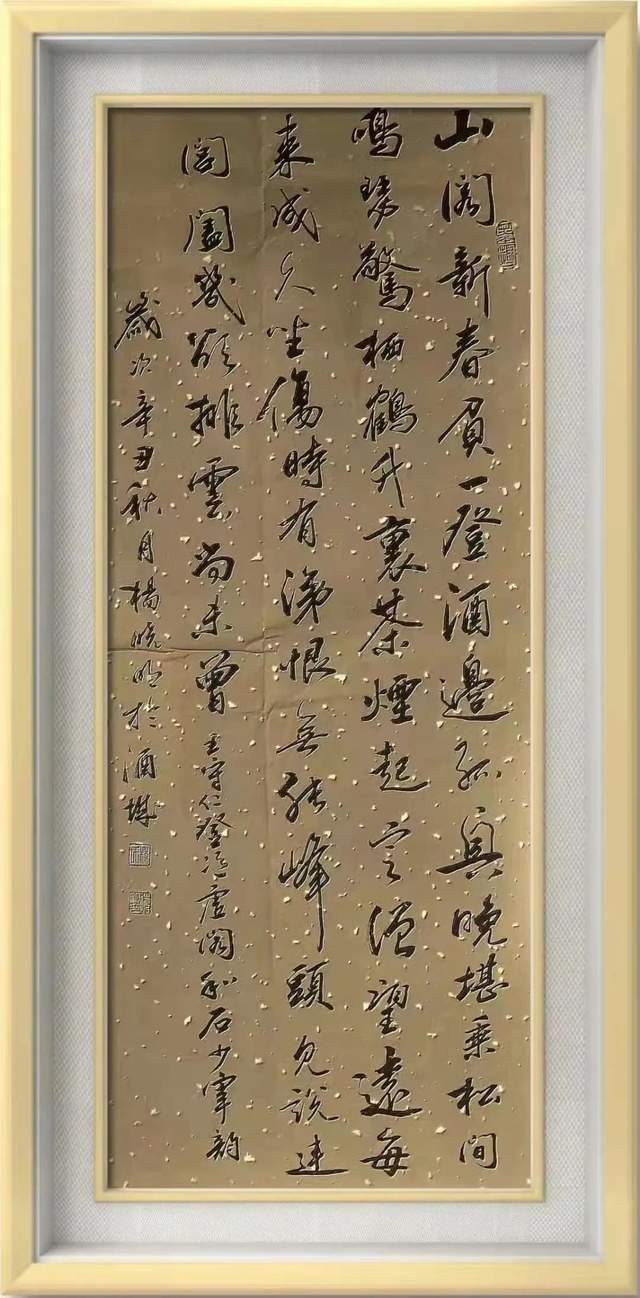 山閣新春負一登酒邊孤興晚堪乘松間
鳴瑟驚栖鶴竹裏茶煙起定僧望遠每
来成久坐傷時有涕恨無能峰頭見說連
閶闔幾欲排雲尚未曾 王守仁登憑虛閣和石少宰韵
歲次辛丑秋月楊曉明於酒城